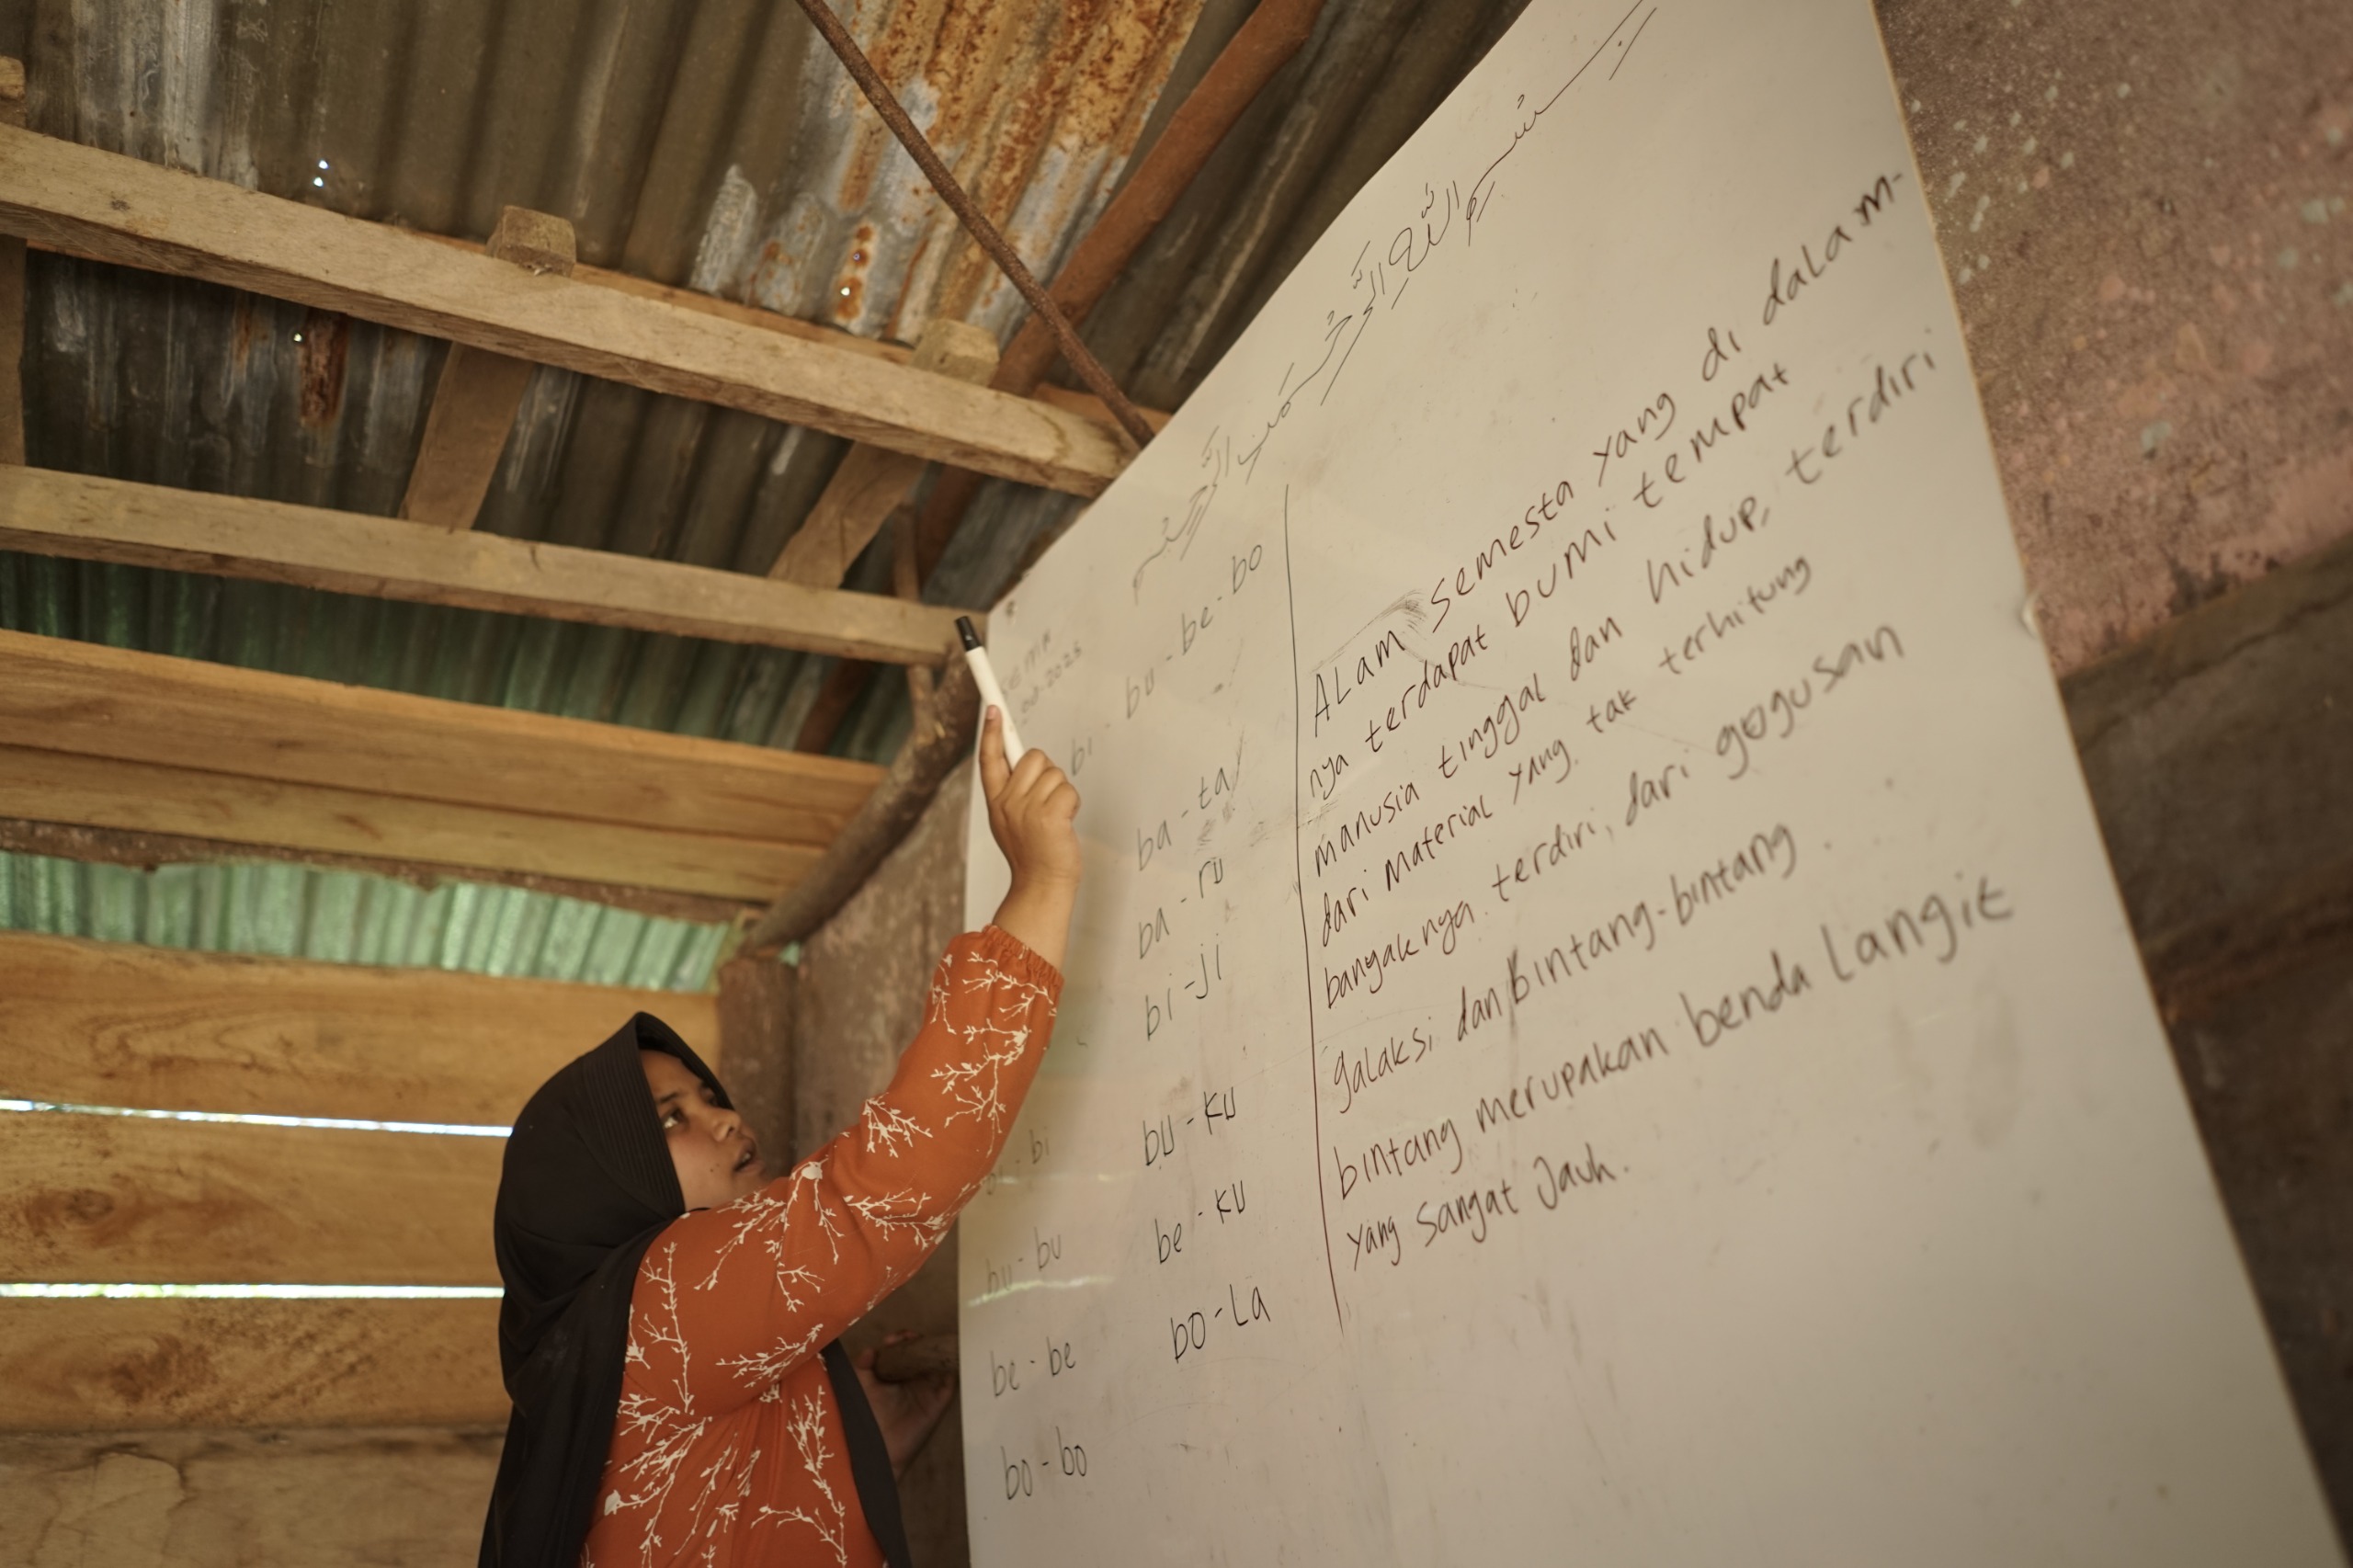 بسم الله الرحمن الرحيم
2025
bi - bu - be - bo
ba - ta
ba - ru
bi - ji
bi
bu - ku
bu - bu
be - ku
be - be
bo - La
bo - bo
ALam semesta yang di dalam-
nya terdapat bumi tempat
manusia tinggal dan hidup, terdiri
dari Material yang tak terhitung
banyaknya. terdiri, dari gugusan
galaksi dan bintang-bintang.
bintang merupakan benda Langit
yang sangat Jauh.